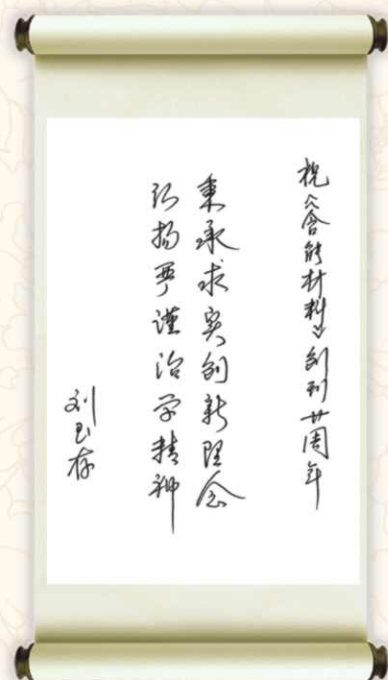 祝《含能材料》创刊廿周年
秉承求实创新理念
弘扬严谨治学精神
刘玉存